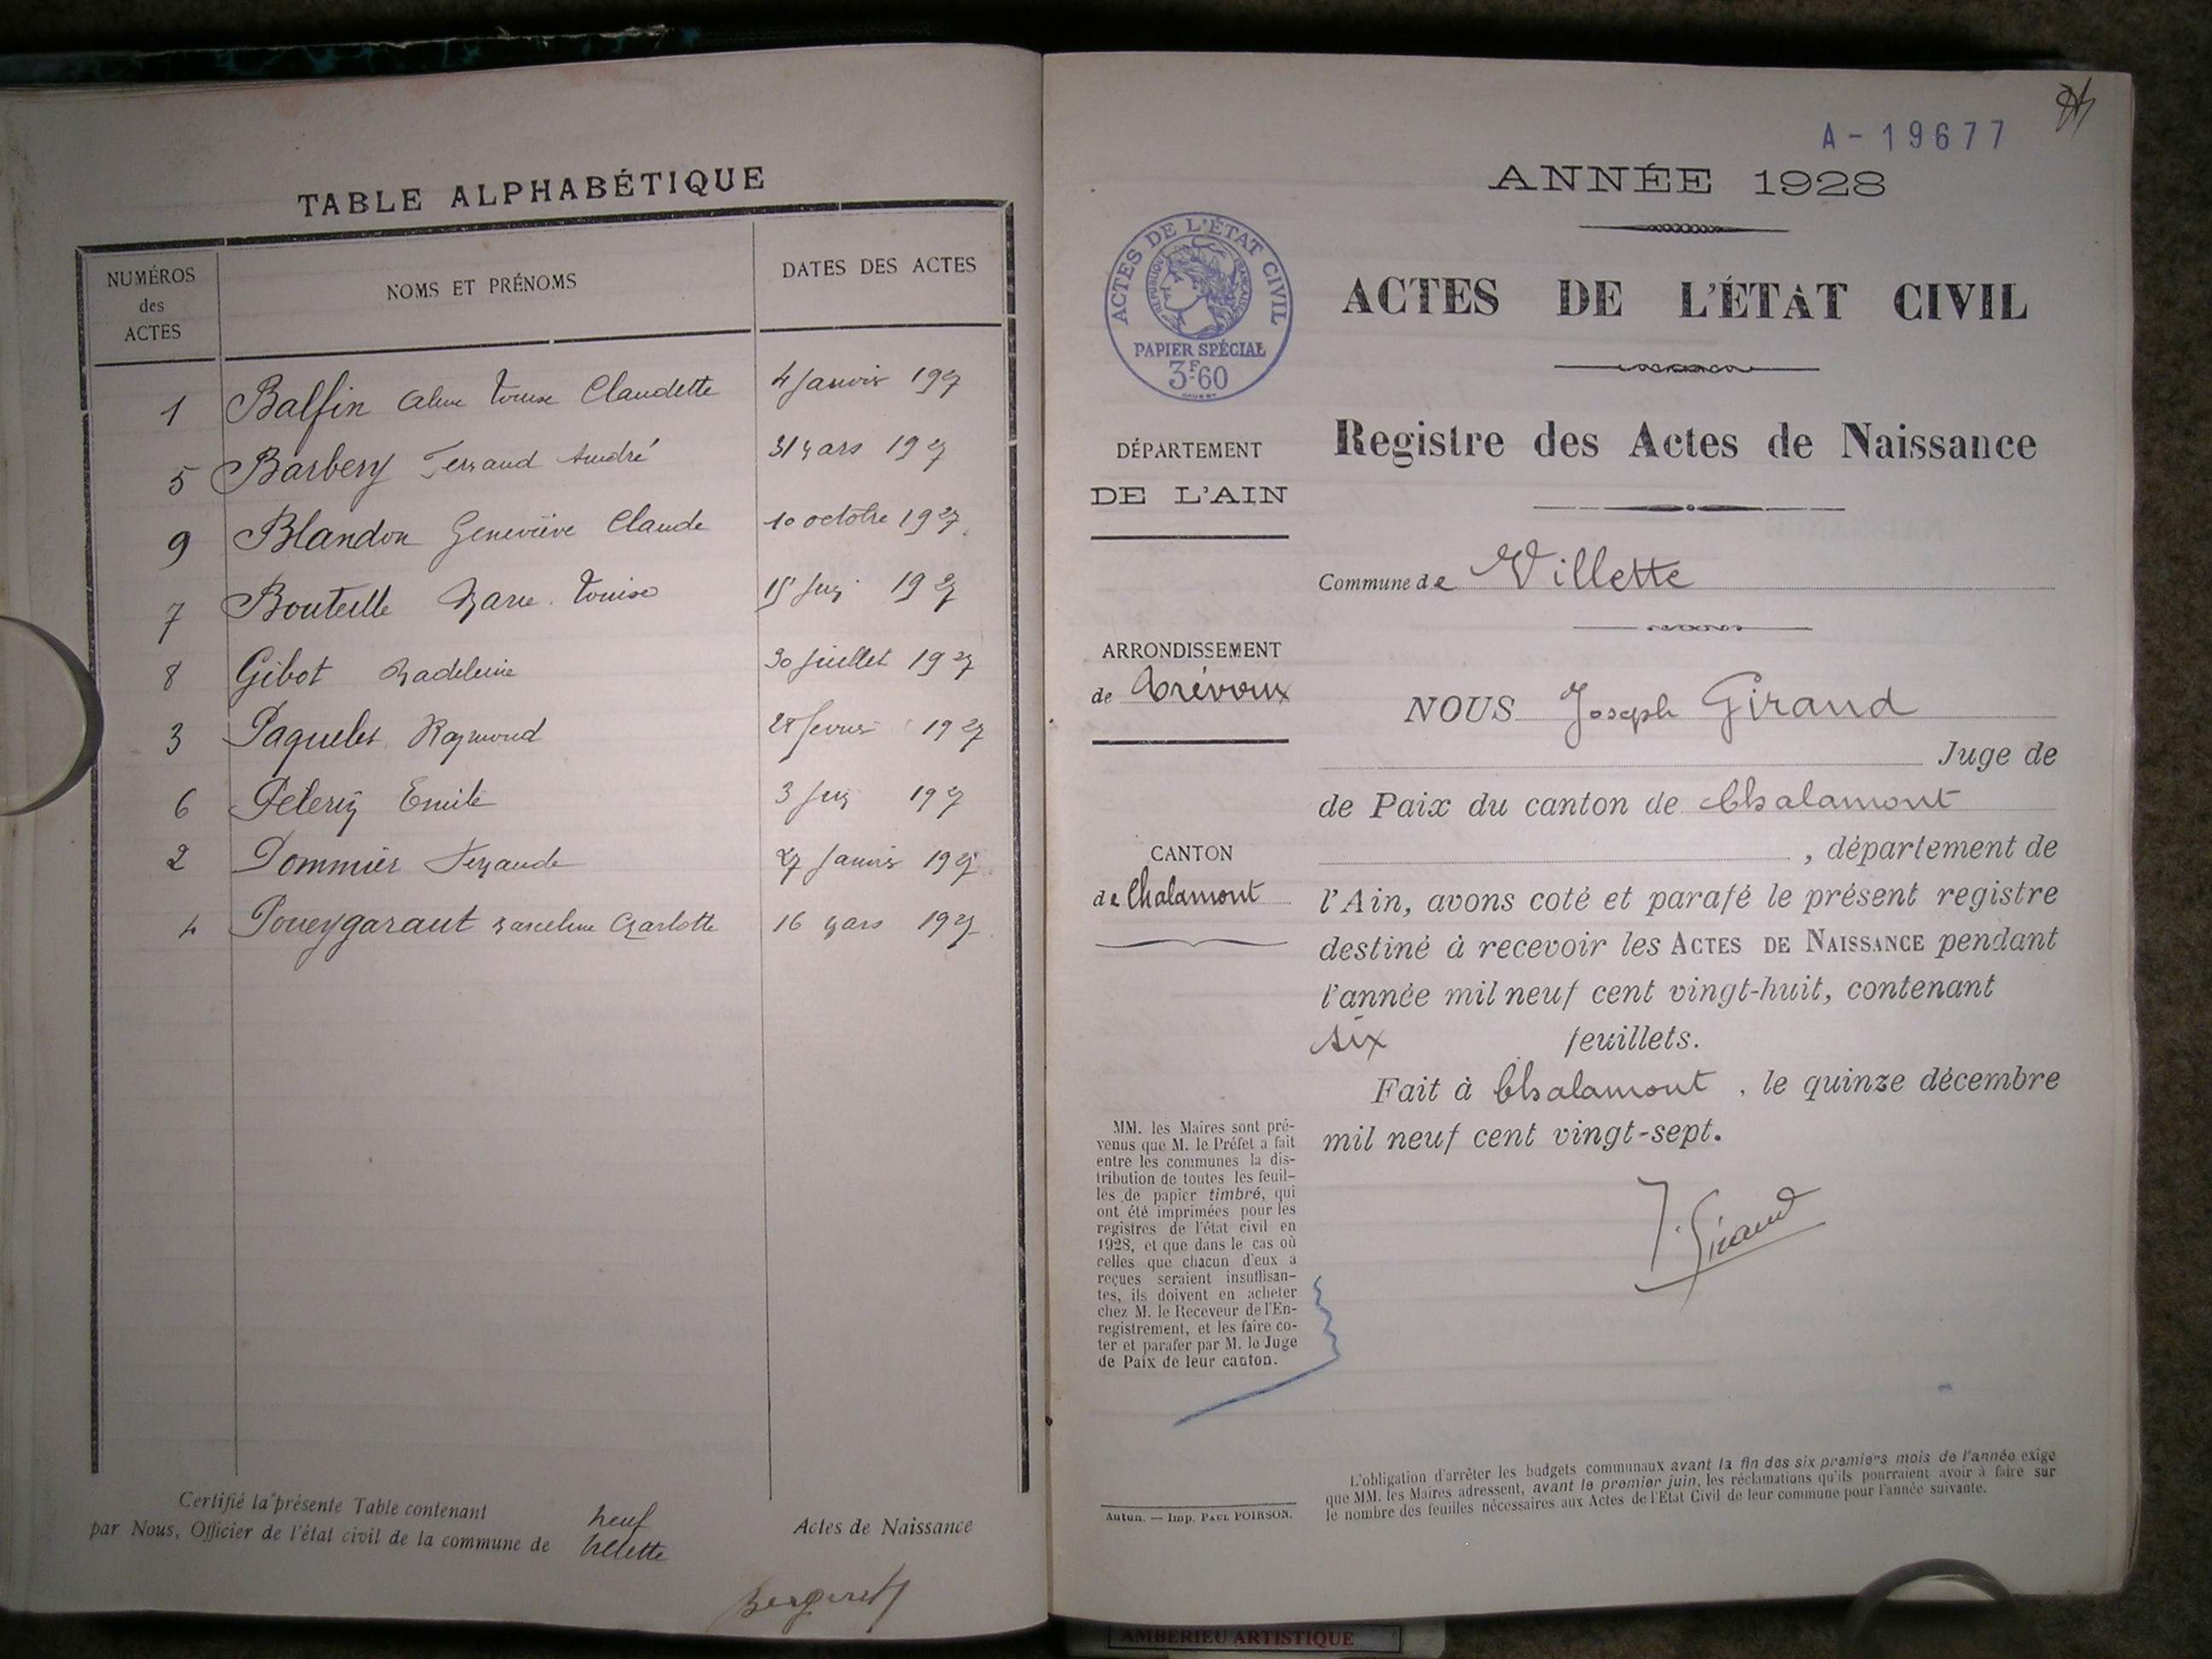 TABLE ALPHABÉTIQUE
NUMÉROS
des
ACTES
NOMS ET PRÉNOMS
DATES DES ACTES
1 Balfin Claudette 4 Janvier 1927
5 Barbery André 31 Mars 1927
9 Blandon Geneviève Claude 10 octobre 1927
7 Bouteille Marie Louise 15 Juin 1927
8 Gibot Madeleine 30 Juillet 1927
3 Paquelet Raymond 28 fevrier 1927
6 Pelerin Emile 3 Juin 1927
2 Pommier Fernande 27 Janvier 1927
4 Poueygaraut Marceline Charlotte 16 Mars 1927
Certifié la présente Table contenant neuf Actes de Naissance
par Nous, Officier de l'état civil de la commune de Villette
A - 19677
ANNÉE 1928
ACTES DE L'ÉTAT CIVIL
RÉPUBLIQUE FRANÇAISE
PAPIER SPÉCIAL
3F60
ACTES DE L'ÉTAT CIVIL
Registre des Actes de Naissance
DÉPARTEMENT
DE L'AIN
Commune de Villette
ARRONDISSEMENT
de Trévoux
NOUS Joseph Giraud
Juge de
de Paix du canton de Chalamont
, département de
CANTON
de Chalamont
l'Ain, avons coté et parafé le présent registre
destiné à recevoir les ACTES DE NAISSANCE pendant
l'année mil neuf cent vingt-huit, contenant
six feuillets.
Fait à Chalamont, le quinze décembre
mil neuf cent vingt-sept.
J. Giraud
MM. les Maires sont pré-
venus que M. le Préfet a fait
entre les communes la dis-
tribution de toutes les feuil-
les de papier timbré, qui
ont été imprimées pour les
registres de l'état civil en
1928, et que dans le cas où
celles que chacun d'eux a
reçues seraient insuffisan-
tes, ils doivent en acheter
chez M. le Receveur de l'En-
registrement, et les faire co-
ter et parafer par M. le Juge
de Paix de leur canton.
Autun. — Imp. PAUL POIRSON.
L'obligation d'arrêter les budgets communaux avant la fin des six premiers mois de l'année exige
que MM. les Maires adressent, avant le premier juin, les réclamations qu'ils pourraient avoir à faire sur
le nombre des feuilles nécessaires aux Actes de l'Etat Civil de leur commune pour l'année suivante.
AMBERIEU ARTISTIQUE